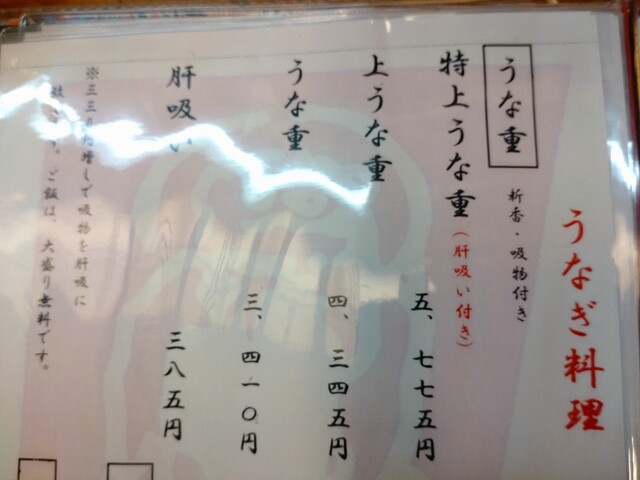 うなぎ料理
うな重
新香・吸物付き
特上うな重(肝吸い付き)
五、七七五円
上うな重
四、三四五円
うな重
三、四一〇円
肝吸い
三八五円
※三三〇円増しで吸物を肝吸に
ご飯は、大盛り無料です。